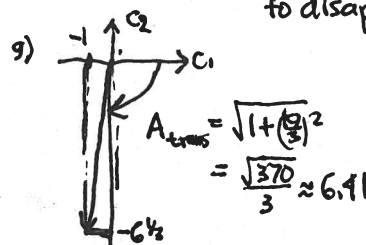 to disap
g)
C₂
-1
C₁
A_trans = √(1 + (19/3)²)
= √370/3 ≈ 6.41
-6 1/3